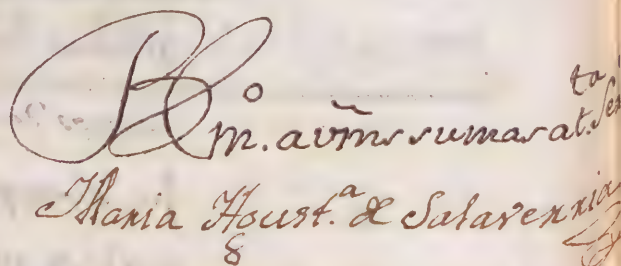 B.l m.º a v̄m̄s su mas at.ta Ser
Maria Houst.ª de Salaverria